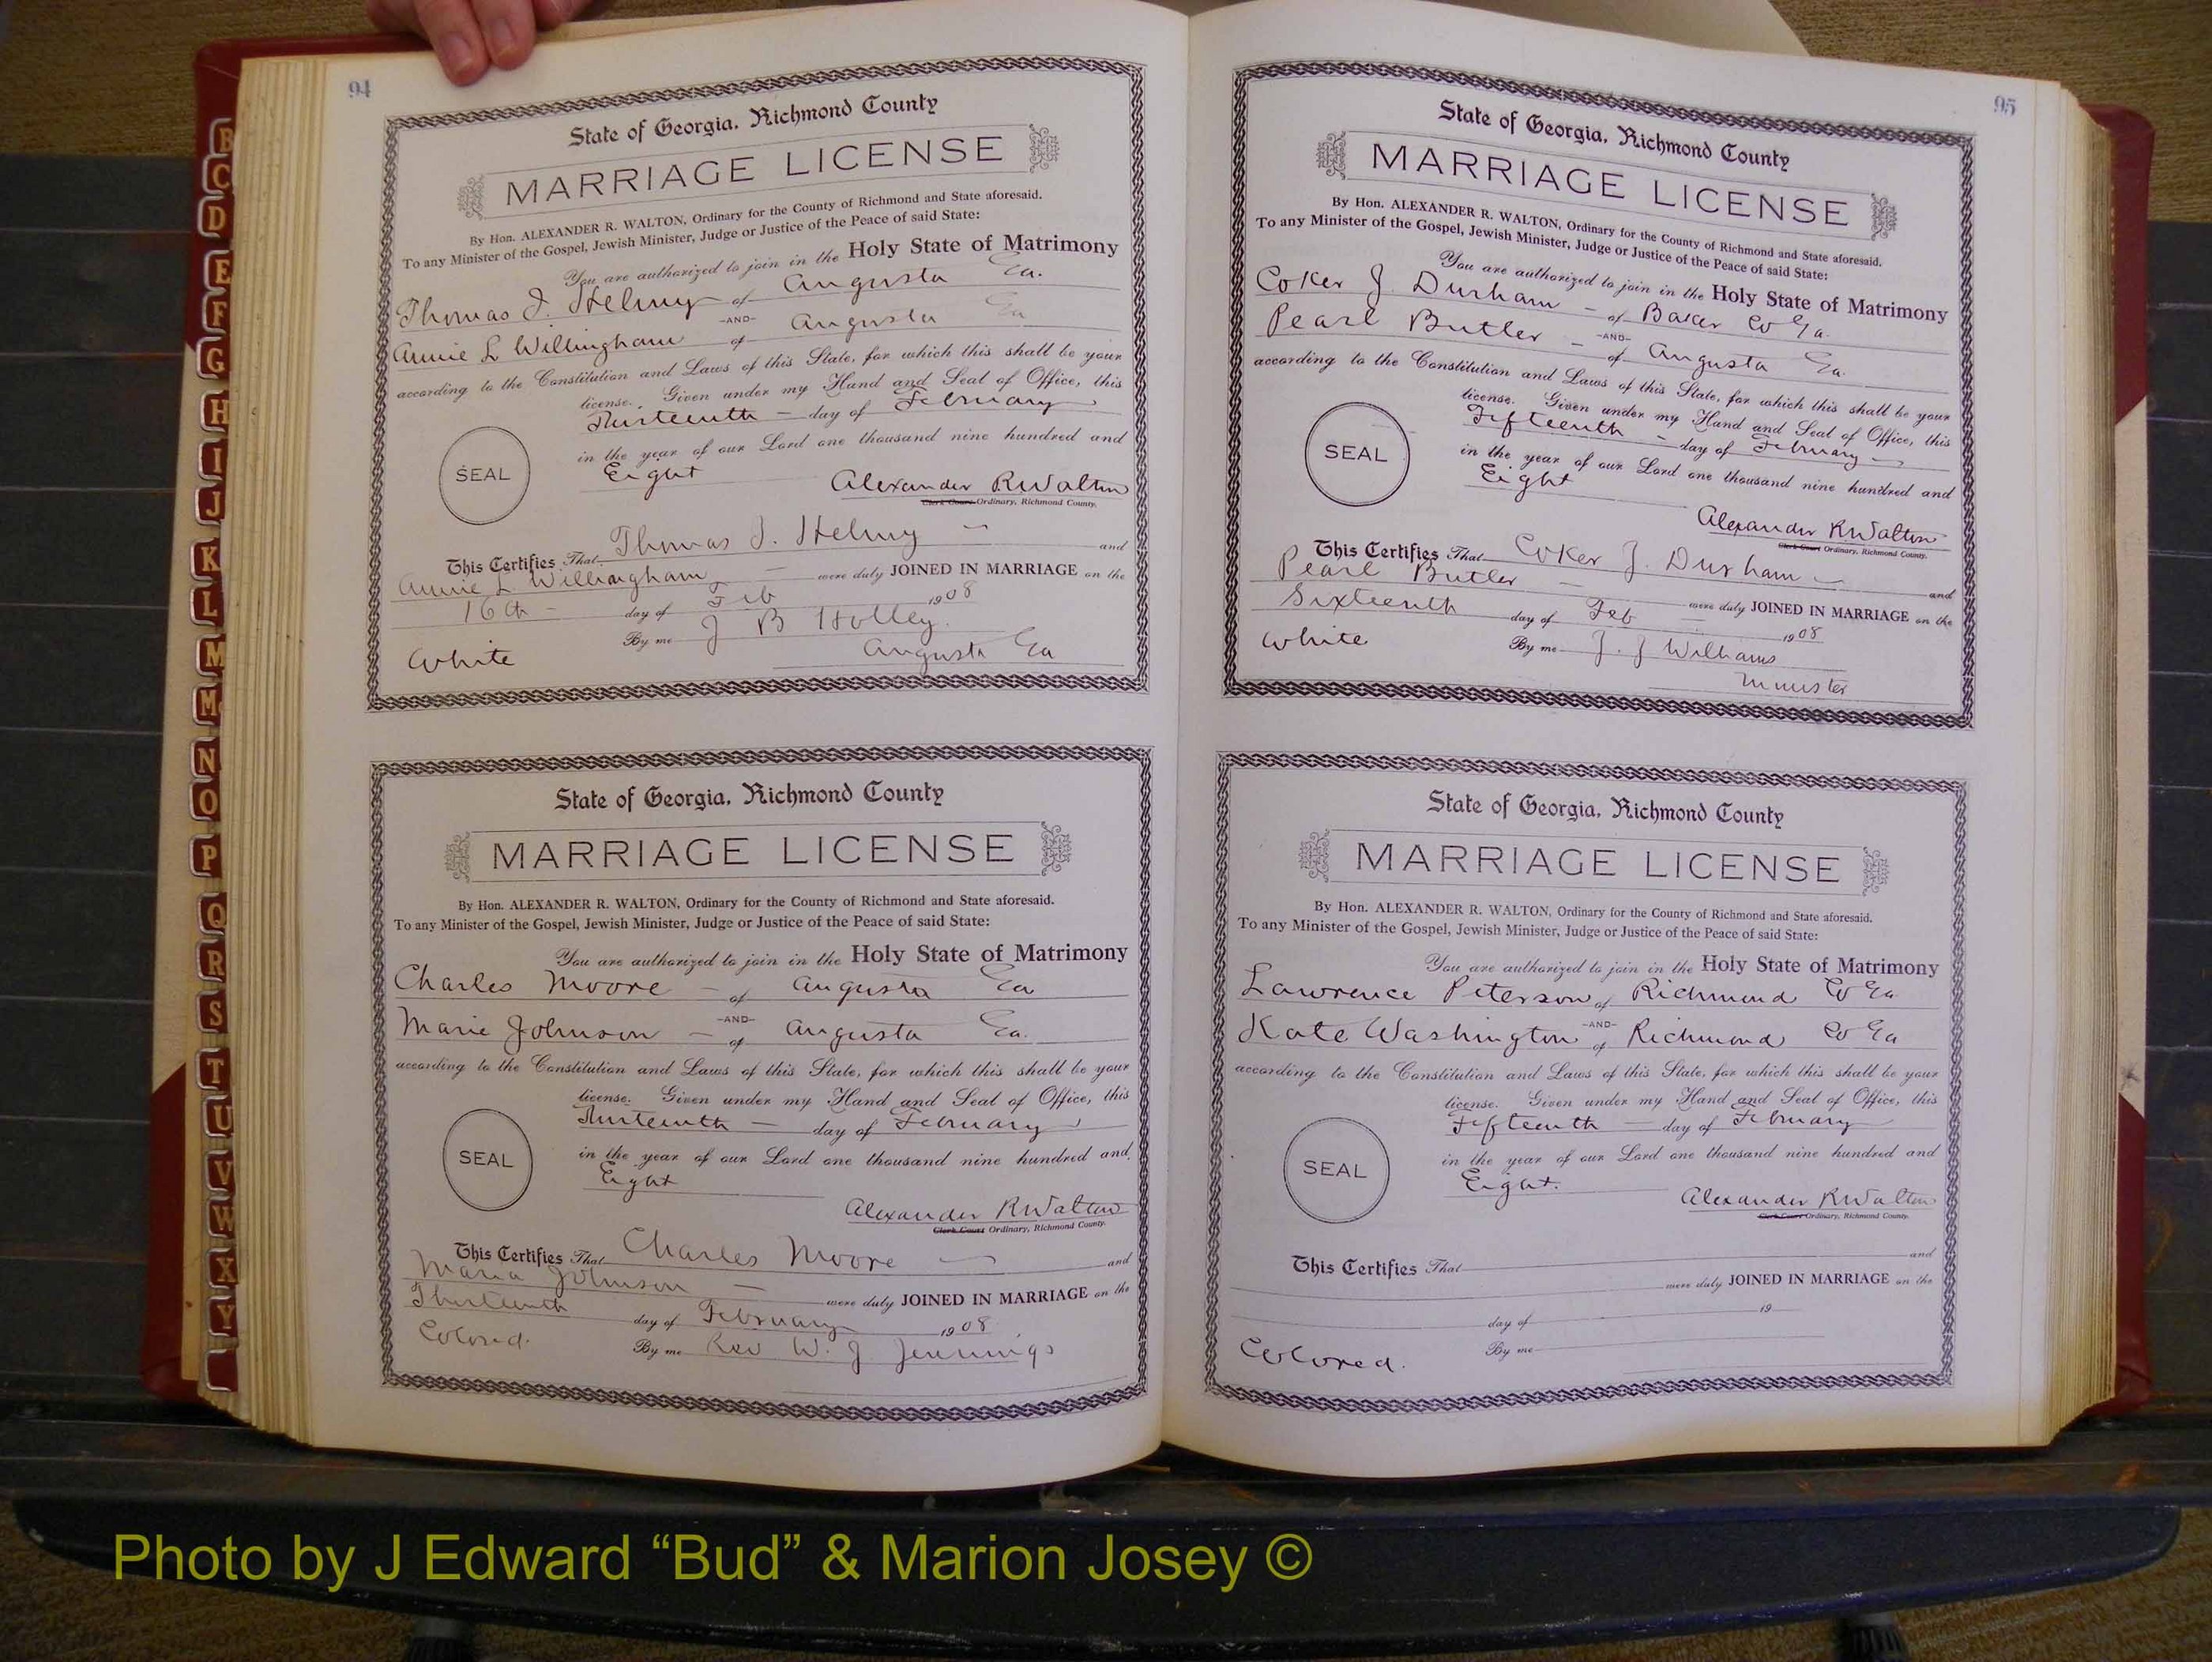 B
C
D
E
F
G
H
I
J
K
L
M
M
N
O
P
Q
R
S
T
U
V
W
X
Y
94
State of Georgia. Richmond County
MARRIAGE LICENSE
By Hon. ALEXANDER R. WALTON, Ordinary for the County of Richmond and State aforesaid.
To any Minister of the Gospel, Jewish Minister, Judge or Justice of the Peace of said State:
You are authorized to join in the Holy State of Matrimony
Thomas J. Helmy of Augusta Ga.
-AND-
Annie L Willingham of Augusta Ga
according to the Constitution and Laws of this State, for which this shall be your
license. Given under my Hand and Seal of Office, this
Thirteenth day of February
SEAL
in the year of our Lord one thousand nine hundred and
Eight
Alexander R Walton
Clerk Court Ordinary, Richmond County.
This Certifies That Thomas J. Helmy and
Annie L. Willingham were duly JOINED IN MARRIAGE on the
16th day of Feb 1908
By me J B Holley
White Augusta Ga
State of Georgia. Richmond County
MARRIAGE LICENSE
By Hon. ALEXANDER R. WALTON, Ordinary for the County of Richmond and State aforesaid.
To any Minister of the Gospel, Jewish Minister, Judge or Justice of the Peace of said State:
You are authorized to join in the Holy State of Matrimony
Charles Moore of Augusta Ga
-AND-
Marie Johnson of Augusta Ga.
according to the Constitution and Laws of this State, for which this shall be your
license. Given under my Hand and Seal of Office, this
Thirteenth day of February
SEAL
in the year of our Lord one thousand nine hundred and
Eight
Alexander R Walton
Clerk Court Ordinary, Richmond County.
This Certifies That Charles Moore and
Maria Johnson were duly JOINED IN MARRIAGE on the
Thirteenth day of February 1908
Colored. By me Rev W. J. Jennings
95
State of Georgia. Richmond County
MARRIAGE LICENSE
By Hon. ALEXANDER R. WALTON, Ordinary for the County of Richmond and State aforesaid.
To any Minister of the Gospel, Jewish Minister, Judge or Justice of the Peace of said State:
You are authorized to join in the Holy State of Matrimony
Coker J. Durham of Baker Co Ga.
-AND-
Pearl Butler of Augusta Ga.
according to the Constitution and Laws of this State, for which this shall be your
license. Given under my Hand and Seal of Office, this
Fifteenth day of February
SEAL
in the year of our Lord one thousand nine hundred and
Eight
Alexander R Walton
Clerk Court Ordinary, Richmond County.
This Certifies That Coker J. Durham and
Pearl Butler were duly JOINED IN MARRIAGE on the
Sixteenth day of Feb 1908
White By me J. J Williams
Minister
State of Georgia. Richmond County
MARRIAGE LICENSE
By Hon. ALEXANDER R. WALTON, Ordinary for the County of Richmond and State aforesaid.
To any Minister of the Gospel, Jewish Minister, Judge or Justice of the Peace of said State:
You are authorized to join in the Holy State of Matrimony
Lawrence Peterson of Richmond Co Ga.
-AND-
Kate Washington of Richmond Co Ga
according to the Constitution and Laws of this State, for which this shall be your
license. Given under my Hand and Seal of Office, this
Fifteenth day of February
SEAL
in the year of our Lord one thousand nine hundred and
Eight.
Alexander R Walton
Clerk Court Ordinary, Richmond County.
This Certifies That and
were duly JOINED IN MARRIAGE on the
day of 19
Colored. By me
Photo by J Edward “Bud” & Marion Josey ©